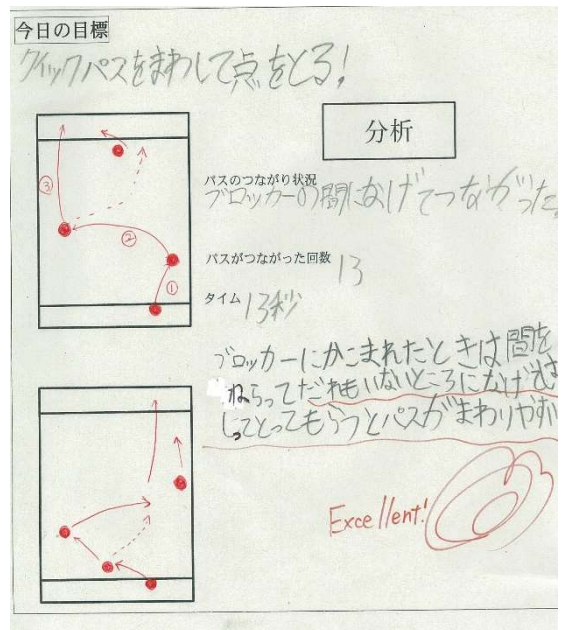 今日の目標
クイックパスをまわして点をとる!
分析
パスのつながり状況
ブロッカーの間になげてつながった
パスがつながった回数 13
タイム 13秒
③
②
①
ブロッカーにかこまれたときは間を
ねらってだれもいないところになげ
しってとってもらうとパスがまわりやす
Excellent!